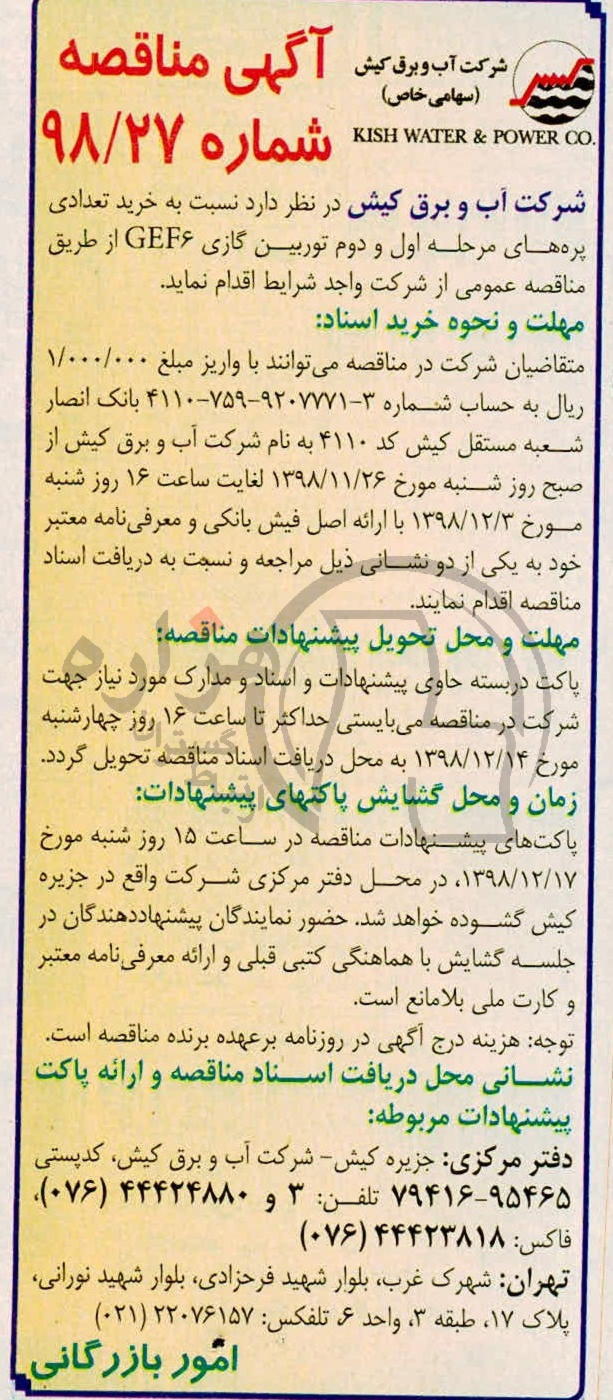 شرکت آب و برق کیش
(سهامی خاص)
KISH WATER & POWER CO.
آگهی مناقصه
شماره ۹۸/۲۷
شرکت آب و برق کیش در نظر دارد نسبت به خرید تعدادی
پره‌های مرحله اول و دوم توربین گازی GEF۶ از طریق
مناقصه عمومی از شرکت واجد شرایط اقدام نماید.
مهلت و نحوه خرید اسناد:
متقاضیان شرکت در مناقصه می‌توانند با واریز مبلغ ۱/۰۰۰/۰۰۰
ریال به حساب شماره ۳-۹۲۰۷۷۷۱-۷۵۹-۴۱۱۰ بانک انصار
شعبه مستقل کیش کد ۴۱۱۰ به نام شرکت آب و برق کیش از
صبح روز شنبه مورخ ۱۳۹۸/۱۱/۲۶ لغایت ساعت ۱۶ روز شنبه
مورخ ۱۳۹۸/۱۲/۳ با ارائه اصل فیش بانکی و معرفی‌نامه معتبر
خود به یکی از دو نشانی ذیل مراجعه و نسبت به دریافت اسناد
مناقصه اقدام نمایند.
مهلت و محل تحویل پیشنهادات مناقصه:
پاکت دربسته حاوی پیشنهادات و اسناد و مدارک مورد نیاز جهت
شرکت در مناقصه می‌بایستی حداکثر تا ساعت ۱۶ روز چهارشنبه
مورخ ۱۳۹۸/۱۲/۱۴ به محل دریافت اسناد مناقصه تحویل گردد.
زمان و محل گشایش پاکتهای پیشنهادات:
پاکت‌های پیشنهادات مناقصه در ساعت ۱۵ روز شنبه مورخ
۱۳۹۸/۱۲/۱۷، در محل دفتر مرکزی شرکت واقع در جزیره
کیش گشوده خواهد شد. حضور نمایندگان پیشنهاددهندگان در
جلسه گشایش با هماهنگی کتبی قبلی و ارائه معرفی‌نامه معتبر
و کارت ملی بلامانع است.
توجه: هزینه درج آگهی در روزنامه برعهده برنده مناقصه است.
نشانی محل دریافت اسناد مناقصه و ارائه پاکت
پیشنهادات مربوطه:
دفتر مرکزی: جزیره کیش- شرکت آب و برق کیش، کدپستی
۷۹۴۱۶-۹۵۴۶۵ تلفن: ۳ و ۴۴۴۲۴۸۸۰ (۰۷۶)،
فاکس: ۴۴۴۲۳۸۱۸ (۰۷۶)
تهران: شهرک غرب، بلوار شهید فرحزادی، بلوار شهید نورانی،
پلاک ۱۷، طبقه ۳، واحد ۶، تلفکس: ۲۲۰۷۶۱۵۷ (۰۲۱)
امور بازرگانی